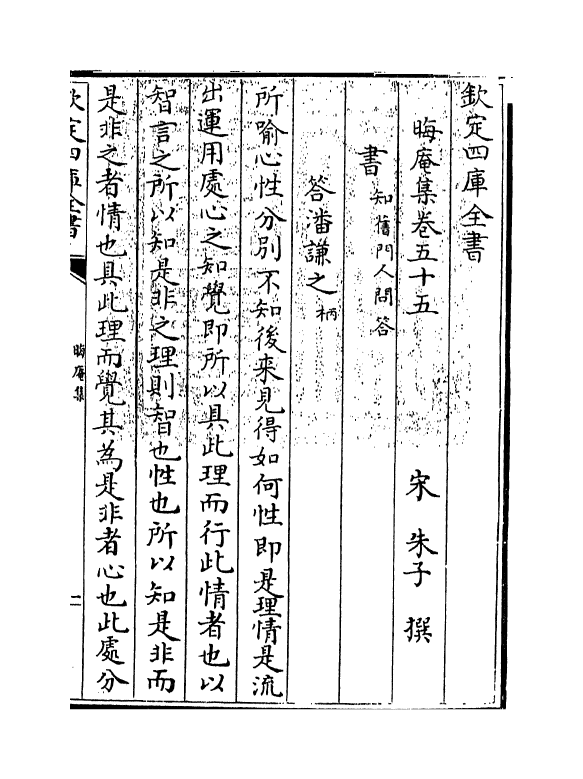 欽定四庫全書
晦庵集卷五十五
宋 朱子 撰
書 知舊門人問答
答潘謙之柄
所喻心性分别不知後来見得如何性即是理情是流
出運用處心之知覺即所以具此理而行此情者也以
智言之所以知是非之理則智也性也所以知是非而
是非之者情也具此理而覺其為是非者心也此處分
欽定四庫全書
晦庵集